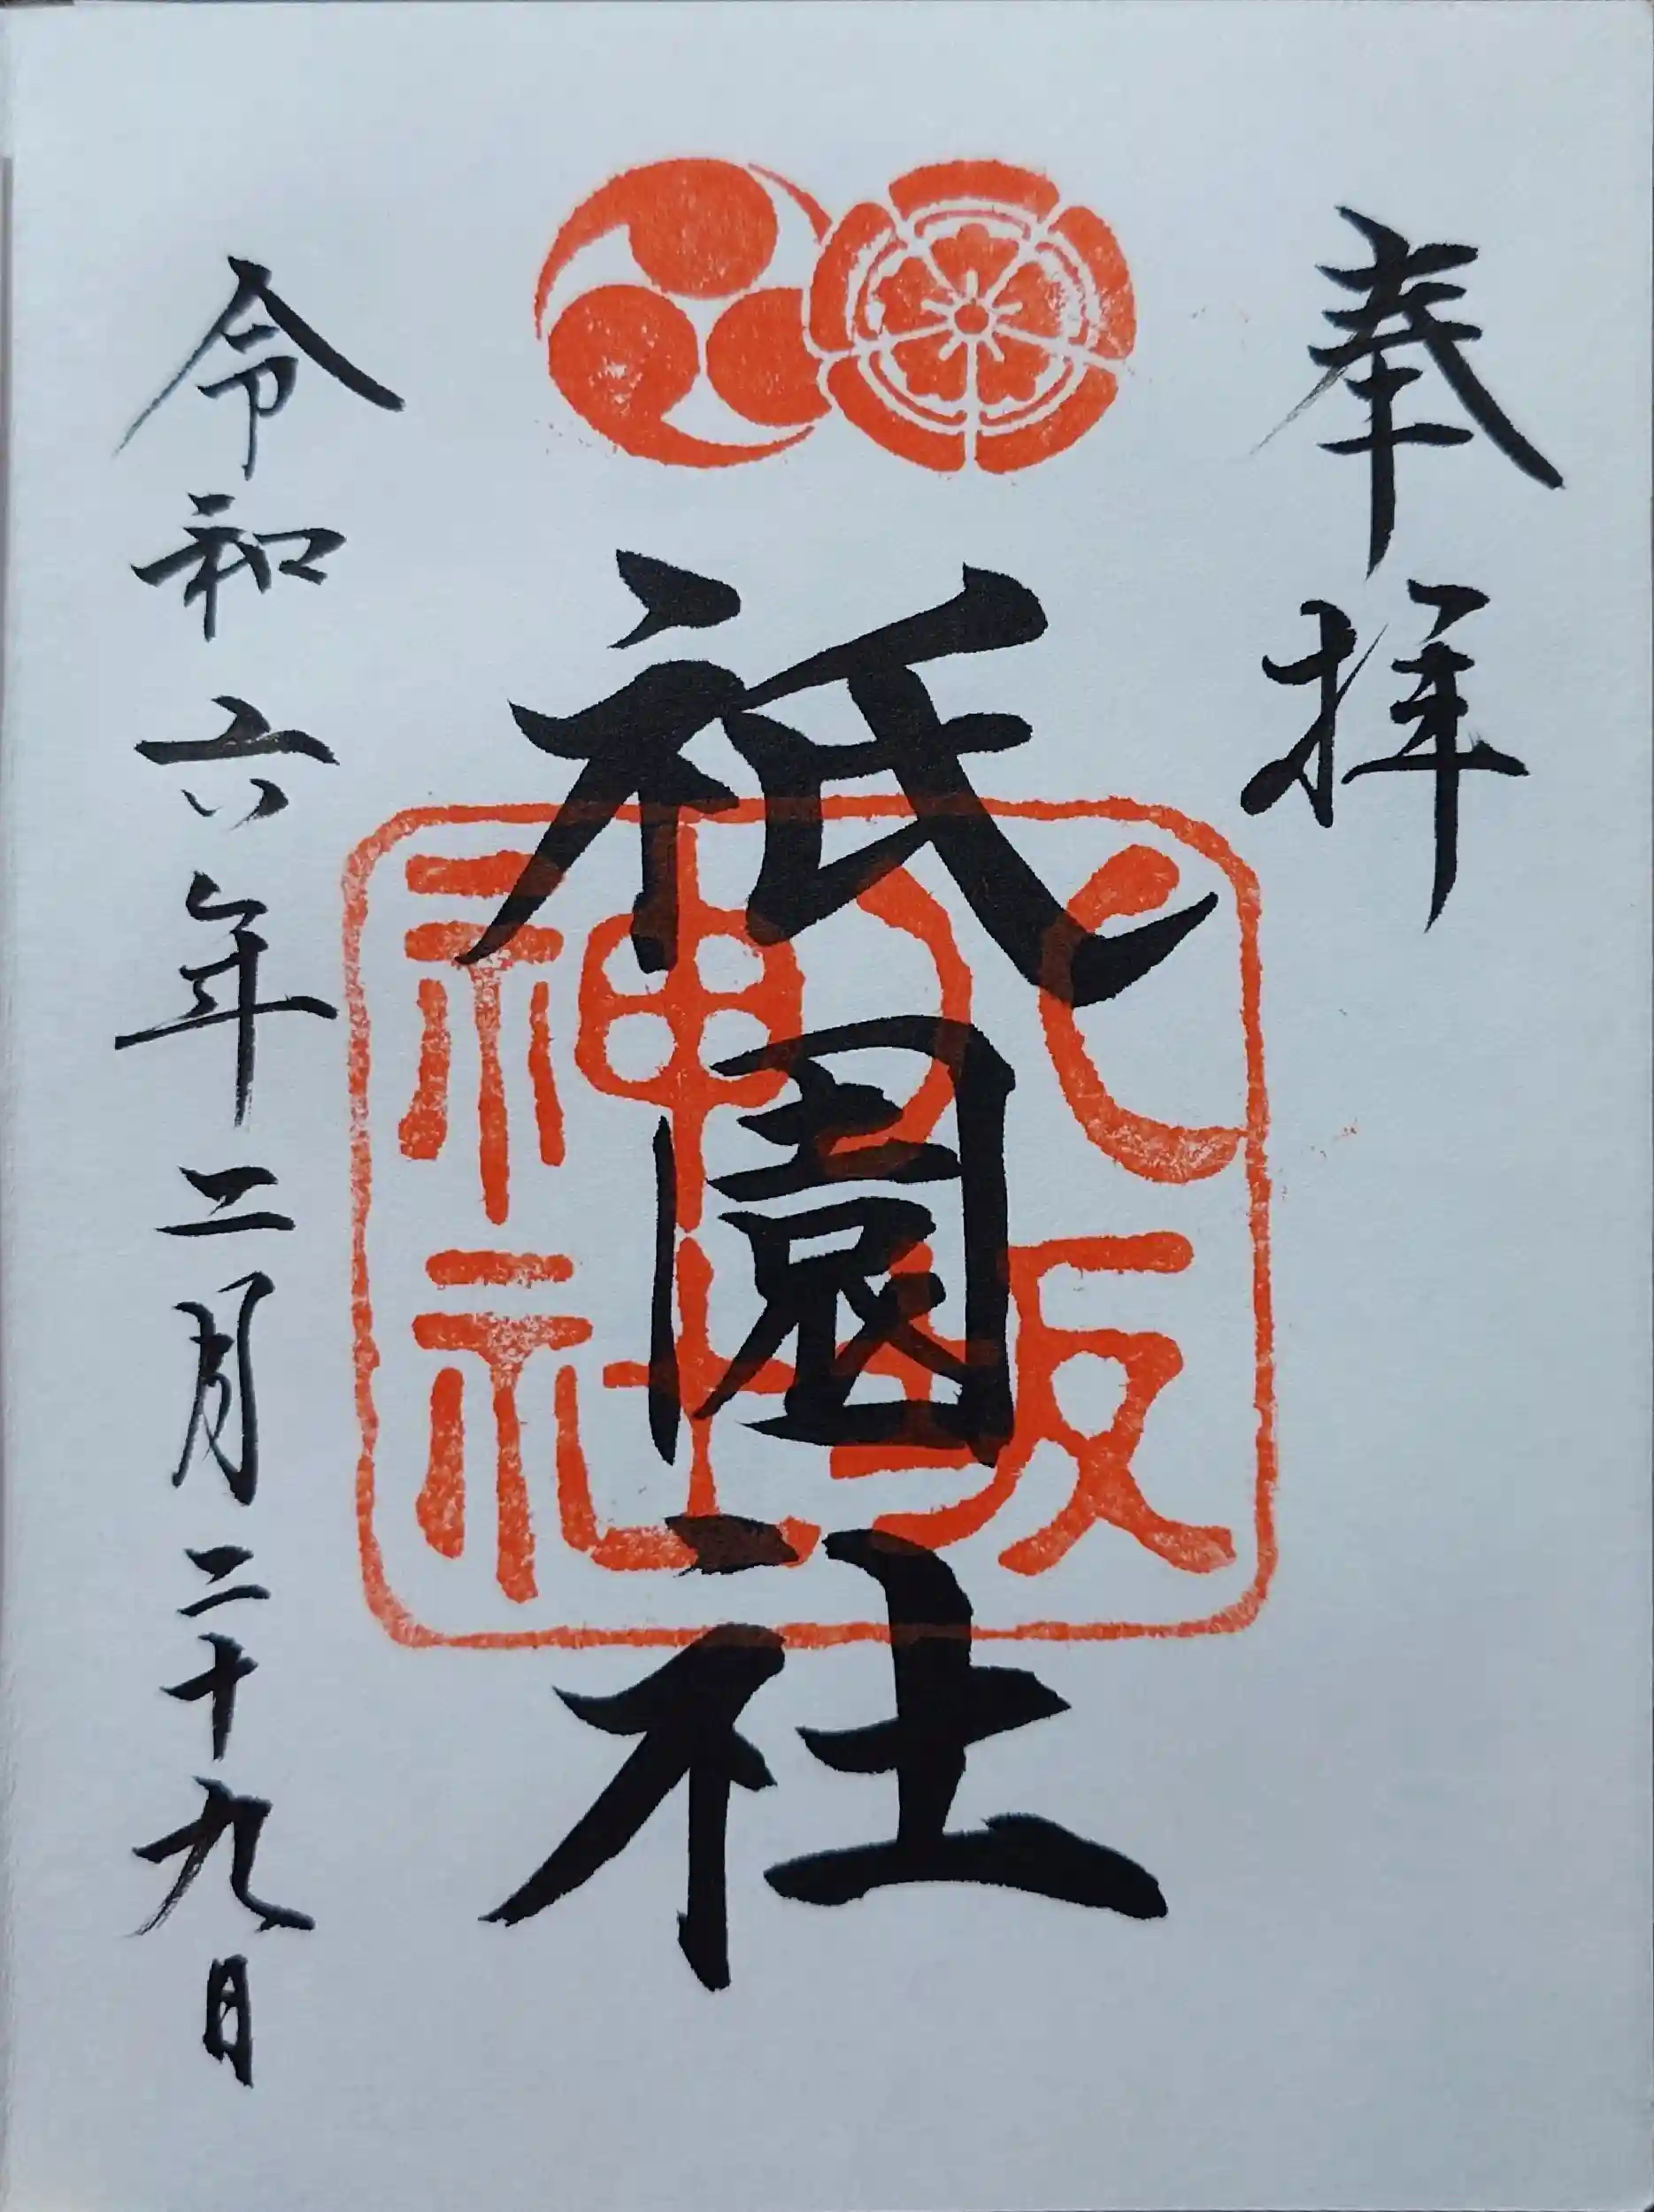 奉拝
祇園社
八坂
神社
令和六年二月二十九日